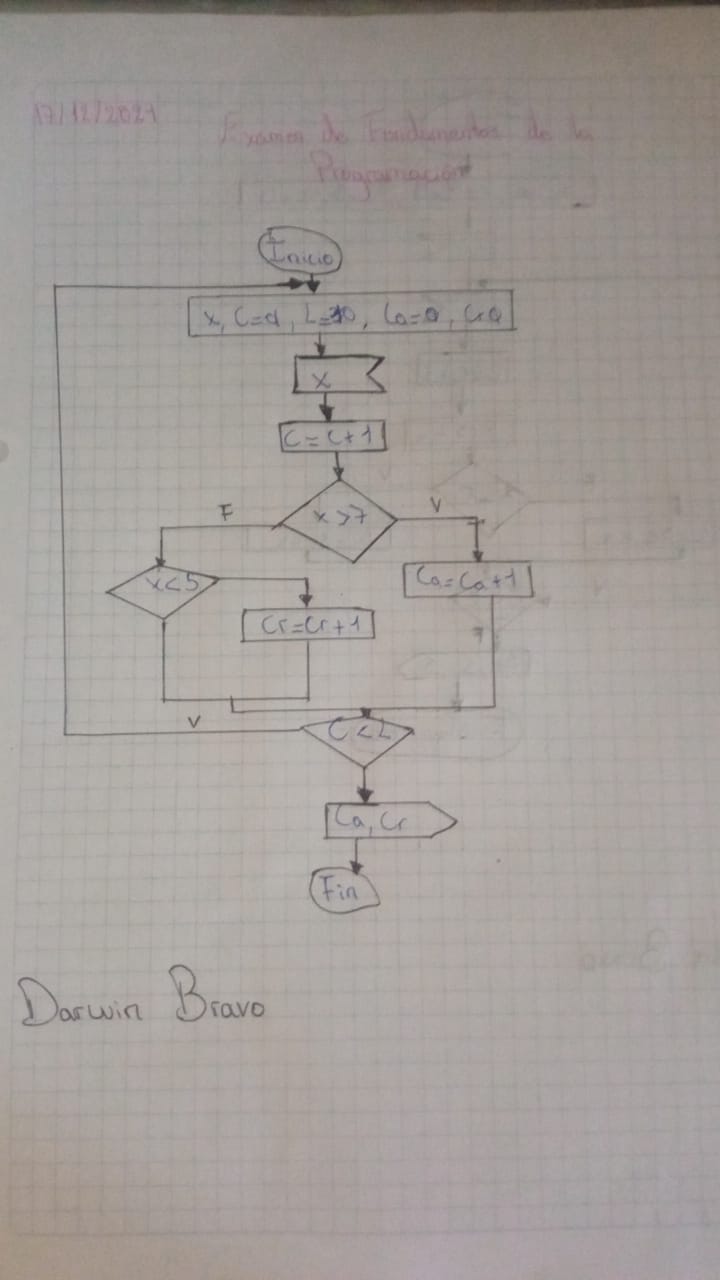 17/12/2021 Examen de Fundamentos de la
Programación
Inicio
x, C=0, L=30, Ca=0, Cr=0
x
C=C+1
x>7
F
V
x<5
Ca=Ca+1
Cr=Cr+1
V
C<L
Ca, Cr
Fin
Darwin Bravo